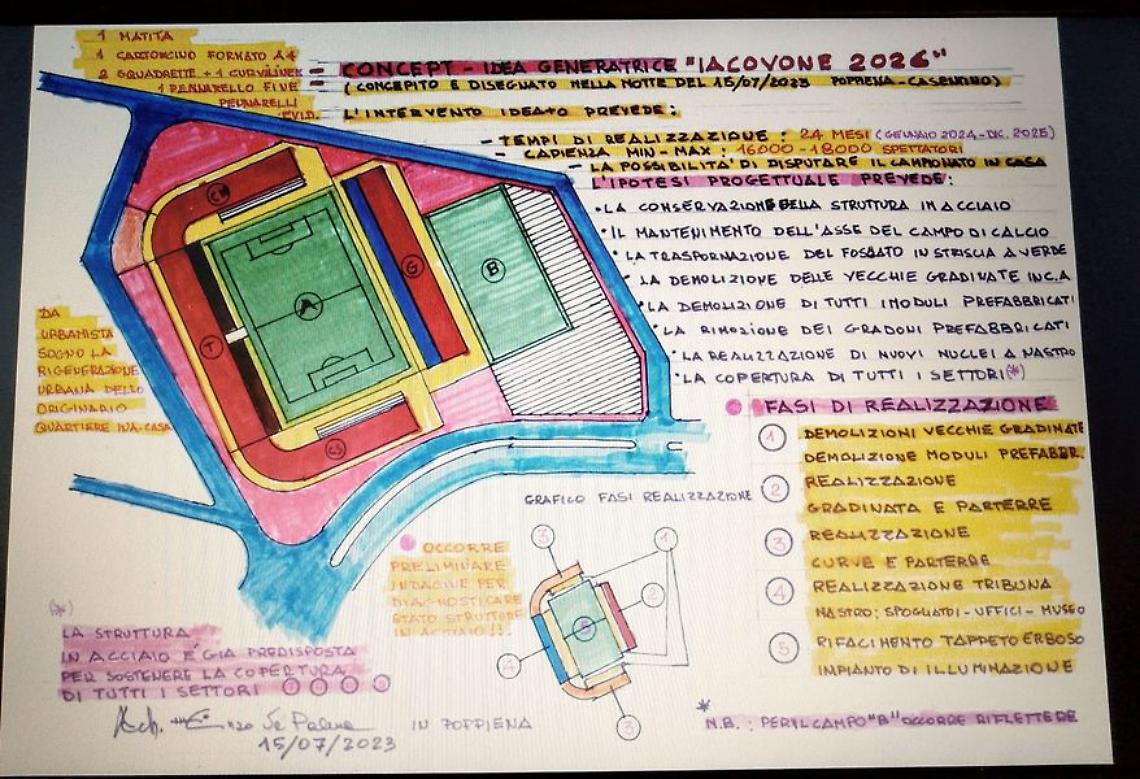 1 MATITA
1 CARTONCINO FORMATO A4
2 SQUADRETTE + 1 CURVILINEE
1 PENNARELLO FINE
PENNARELLI
EVID.
CONCEPT - IDEA GENERATRICE "IACOVONE 2026"
(CONCEPITO E DISEGNATO NELLA NOTTE DEL 15/07/2023 POPPIENA - CASENTINO)
L'INTERVENTO IDEATO PREVEDE:
- TEMPI DI REALIZZAZIONE: 24 MESI (GENNAIO 2024 - DIC. 2025)
- CAPIENZA MIN - MAX: 16000 - 18000 SPETTATORI
- LA POSSIBILITA' DI DISPUTARE IL CAMPIONATO IN CASA
L'IPOTESI PROGETTUALE PREVEDE:
• LA CONSERVAZIONE DELLA STRUTTURA IN ACCIAIO
• IL MANTENIMENTO DELL'ASSE DEL CAMPO DI CALCIO
• LA TRASFORNAZIONE DEL FOSSATO IN STRISCIA A VERDE
• LA DEMOLIZIONE DELLE VECCHIE GRADINATE IN C.A
• LA DEMOLIZIONE DI TUTTI I MODULI PREFABBRICATI
• LA RIMOZIONE DEI GRADONI PREFABBRICATI
• LA REALIZZAZIONE DI NUOVI NUCLEI A NASTRO
• LA COPERTURA DI TUTTI I SETTORI (*)
CN
G
B
A
T
CS
DA
URBANISTA
SOGNO LA
RIGENERAZIONE
URBANA DELLO
ORIGINARIO
QUARTIERE INA-CASA
FASI DI REALIZZAZIONE
1 DEMOLIZIONI VECCHIE GRADINATE
DEMOLIZIONE MODULI PREFABBR.
2 REALIZZAZIONE
GRADINATA E PARTERRE
3 REALIZZAZIONE
CURVE E PARTERRE
4 REALIZZAZIONE TRIBUNA
NASTRO; SPOGLIATOI - UFFICI - MUSEO
5 RIFACIMENTO TAPPETO ERBOSO
IMPIANTO DI ILLUMINAZIONE
GRAFICO FASI REALIZZAZIONE
3
1
2
5
4
3
OCCORRE
PRELIMINARE
INDAGINE PER
DIAGNOSTICARE
STATO STRUTTURE
IN ACCIAIO!!
(*)
LA STRUTTURA
IN ACCIAIO E' GIA PREDISPOSTA
PER SOSTENERE LA COPERTURA
DI TUTTI I SETTORI
Arch. Enzo De Palma
15/07/2023
IN POPPIENA
*
N.B.: PER IL CAMPO "B" OCCORRE RIFLETTERE